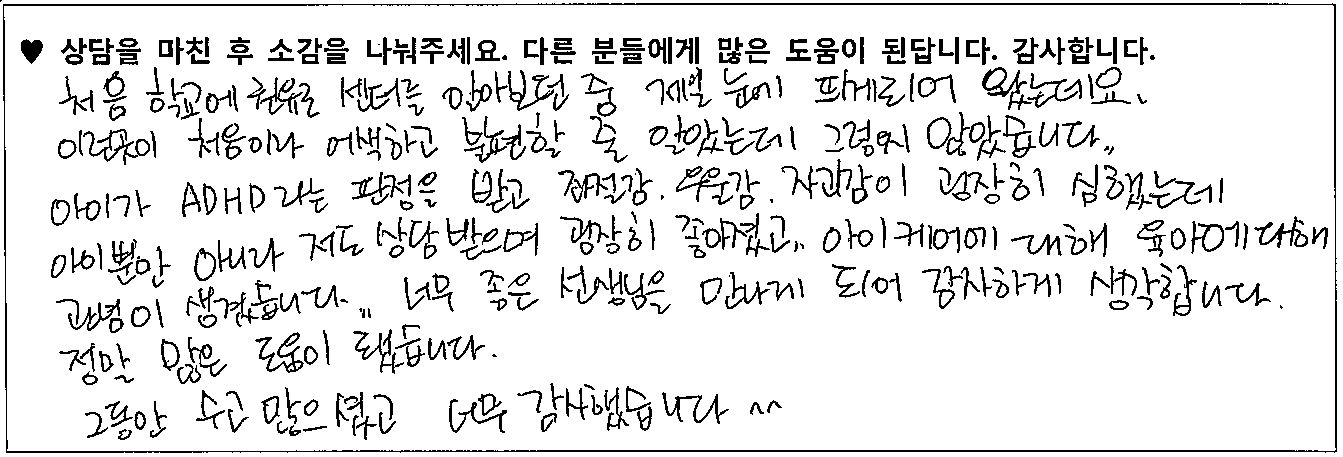 ♥ 상담을 마친 후 소감을 나눠주세요. 다른 분들에게 많은 도움이 된답니다. 감사합니다.
처음 학교에 권유로 센터를 알아보던 중 제일 눈에 띄게되어 왔는데요.
이런곳이 처음이라 어색하고 불편할 줄 알았는데 그렇지 않았습니다..
아이가 ADHD라는 판정을 받고 좌절감. 우울감. 자괴감이 굉장히 심했는데
아이뿐만 아니라 저도 상담받으며 굉장히 좋아졌고.. 아이케어에 대해 육아에대해
관념이 생겼습니다.. 너무 좋은 선생님을 만나게 되어 감사하게 생각합니다.
정말 많은 도움이 됐습니다.
그동안 수고 많으셨고 너무 감사했습니다 ^^